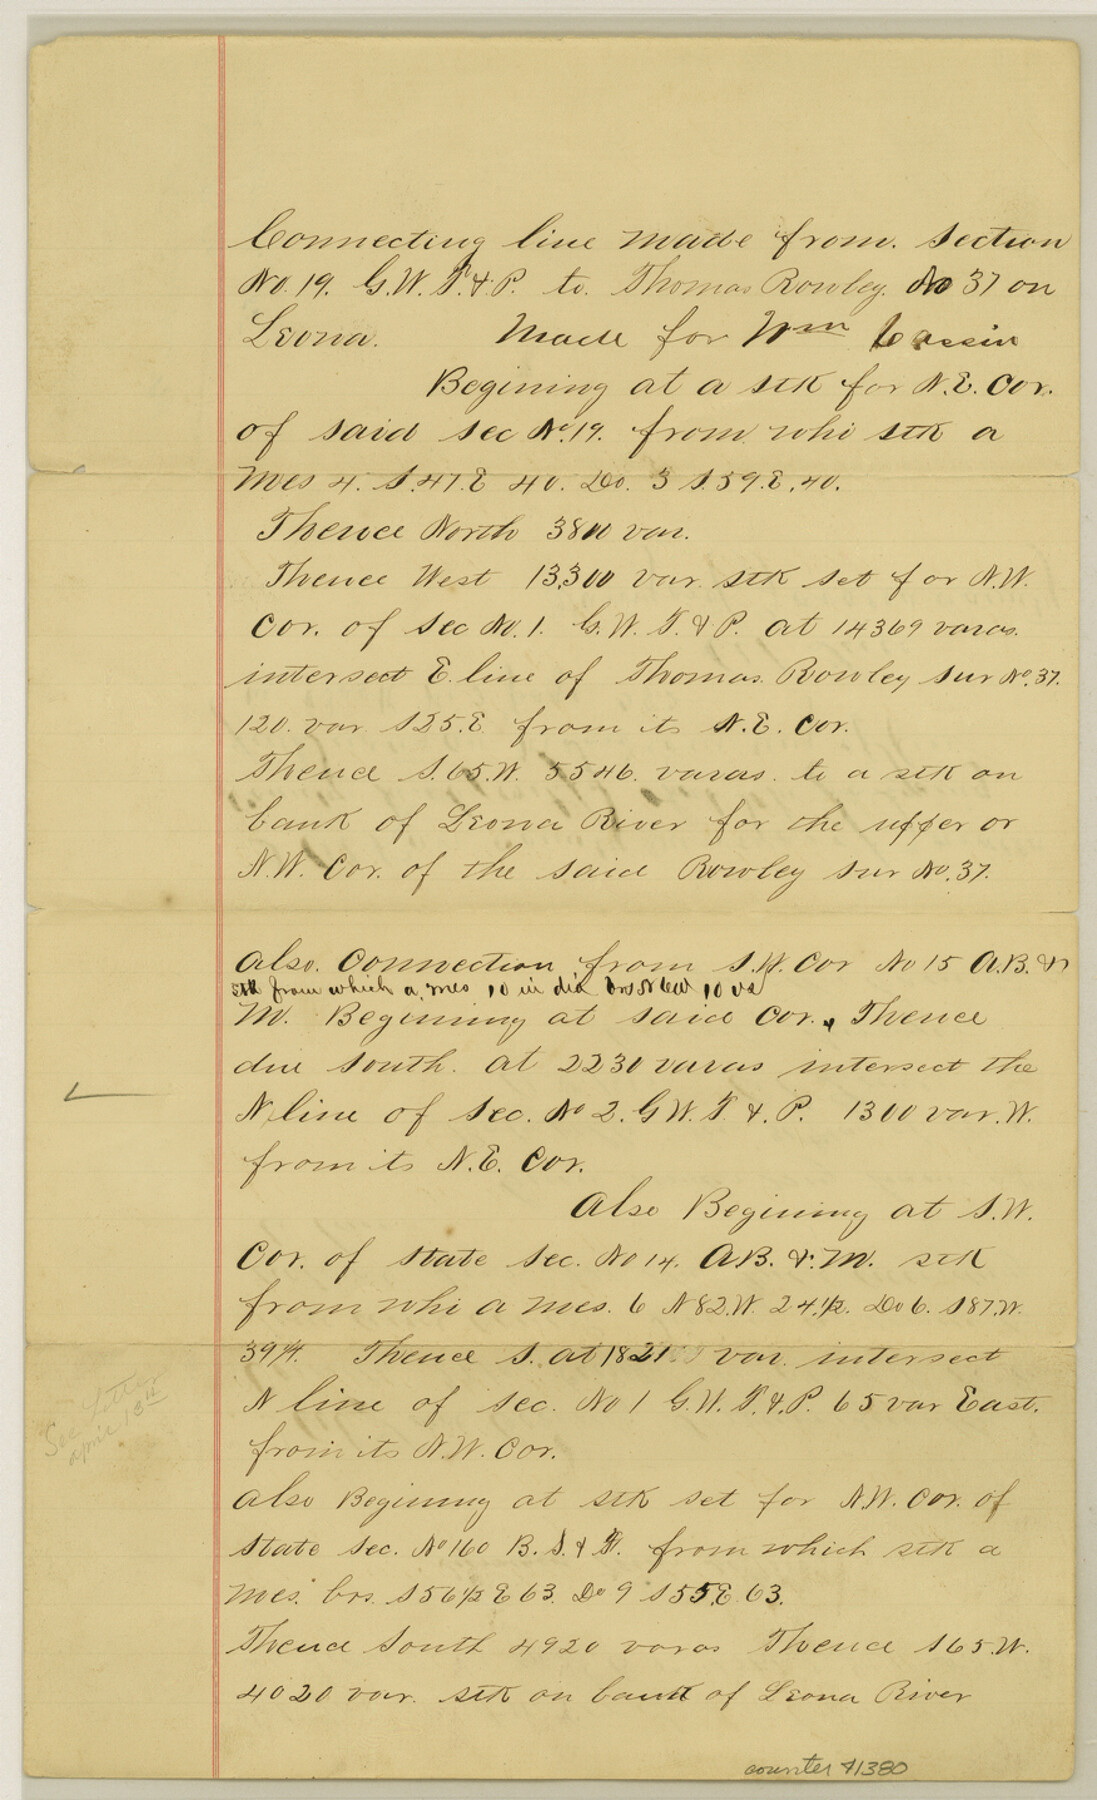 Connecting line made from. Section
No. 19. G.W.T.&P. to. Thomas Rowley. No 37 on
Leona. Made for Wm Cassin
Begining at a stk for N.E. Cor.
of said sec No. 19. from whi stk a
Mes 4. S.47.E 40. Do. 3 S.59.E.40.
Thence North 3800 var.
Thence West 13300 var. stk set for N.W.
Cor. of Sec No. 1. G.W.T.&P. at 14369 varas.
intersect E. line of Thomas. Rowley sur No. 37.
120. var S25.E from its N.E. Cor.
Thence S.65.W. 5546. varas. to a stk on
bank of Leona River for the upper or
N.W. Cor. of the said Rowley sur No. 37.
Also. Connection from S.W. Cor No 15 A.B.&
stk from which a mes 10 in dia brs 10 vs
M. Begining at said Cor. Thence
due south. at 2230 varas intersect the
N line of Sec. No 2. G.W.T.&.P. 1300 var. W.
from its N.E. Cor.
Also Begining at S.W.
Cor. of state sec. No 14. A.B.&.M. stk
from whi a mes. 6 N82.W. 24.1/2. Do 6. S87.W.
39 1/4. Thence S. at 1821 var. intersect
N line of sec. No 1 G.W.T.&.P. 65 var East.
from its N.W. Cor.
Also Begining at stk set for N.W. Cor. of
State Sec. No 160 B.S.&F. from which stk a
Mes. brs. S56 1/2 E 63. Do 9 S55.E. 63.
Thence South 4920 varas Thence S65.W.
4020 var. stk on bank of Leona River
See Letter
April 13th
counter 41380